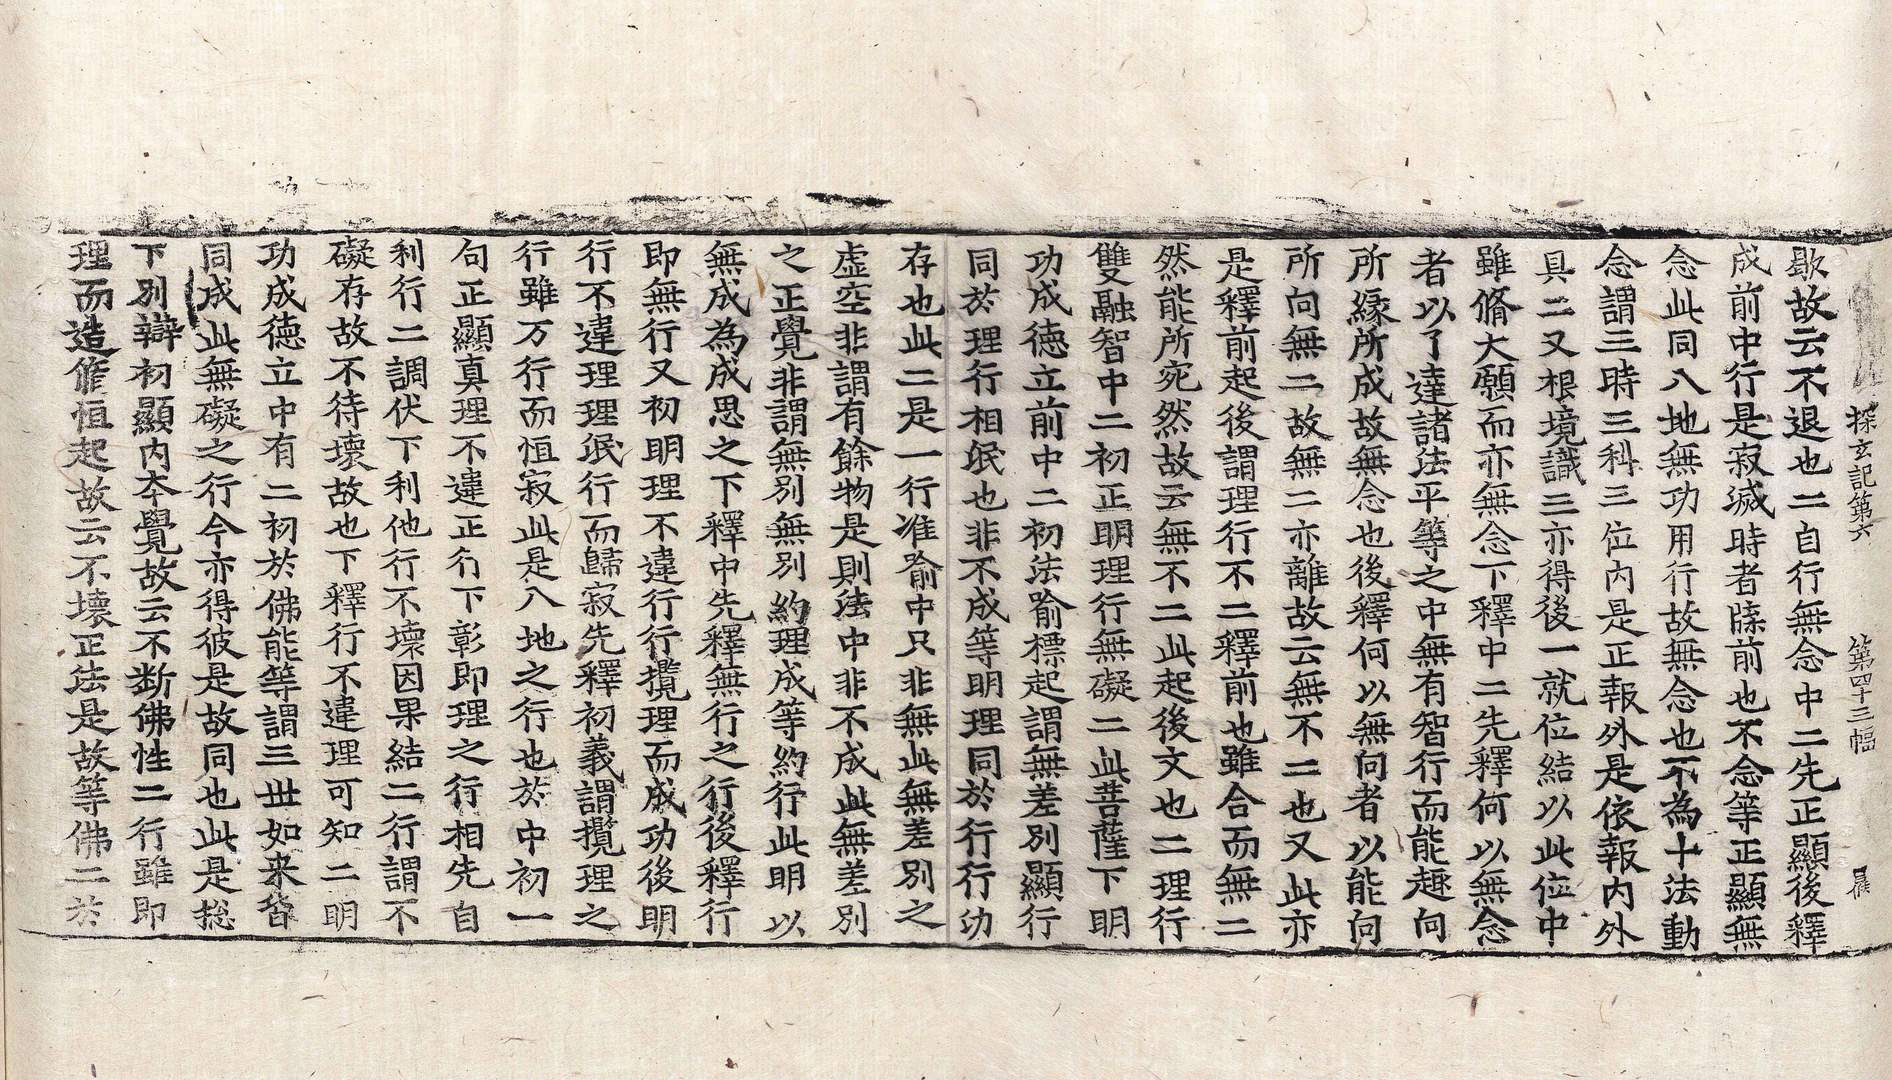 探玄記第六 第四十三幅
歇故云不退也二自行無念中二先正顯後釋
成前中行是寂滅時者牒前也不念等正顯無
念此同八地無功用行故無念也不為十法動
念謂三時三科三位內是正報外是依報內外
具二又根境識三亦得後一就位結以此位中
雖脩大願而亦無念下釋中二先釋何以無念
者以了達諸法平等之中無有智行而能趣向
所緣所成故無念也後釋何以無向者以能向
所向無二故無二亦離故云無不二也又此亦
是釋前起後謂理行不二釋前也雖合而無二
然能所宛然故云無不二此起後文也二理行
雙融智中二初正明理行無礙二此菩薩下明
功成德立前中二初法喻標起謂無差別顯行
同於理行相泯也非不成等明理同於行行功
存也此二是一行准喻中只非無此無差別之
虛空非謂有餘物是則法中非不成此無差別
之正覺非謂無別無別約理成等約行此明以
無成為成思之下釋中先釋無行之行後釋行
即無行又初明理不違行行攬理而成功後明
行不違理理泯行而歸寂先釋初義謂攬理之
行雖万行而恒寂此是八地之行也於中初一
句正顯真理不違正行下彰即理之行相先自
利行二調伏下利他行不壞因果結二行謂不
礙存故不待壞故也下釋行不違理可知二明
功成德立中有二初於佛能等謂三世如来皆
同成此無礙之行今亦得彼是故同也此是捴
下別辯初顯內本覺故云不斷佛性二行雖即
理而造脩恒起故云不壞正法是故等佛二於